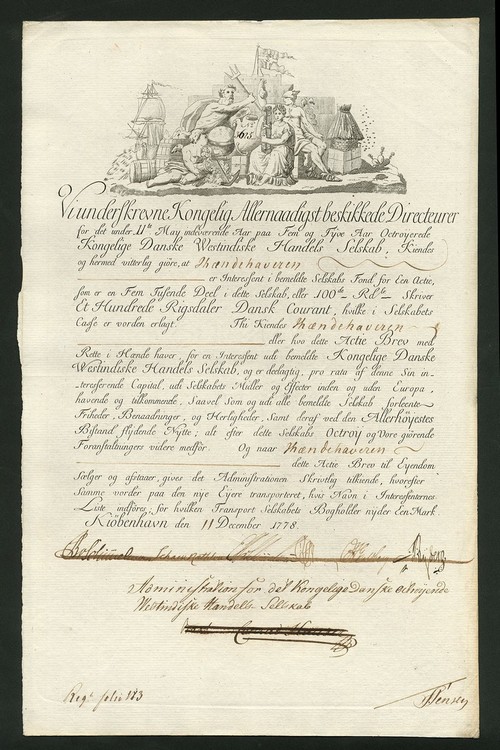 Vi underskrevne Kongelig Allernaadigst beskikkede Directeurer
for det under 11te May indeværende Aar paa Fem og Tyve Aar Octroyerede
Kongelige Danske Westindiske Handels Selskab, Kiendes
og hermed vitterlig giöre, at Ihændehaveren
er Interessent i bemeldte Selskabs Fond for Een Actie,
som er en Fem Tusende Deel i dette Selskab, eller 100de Rdlr Skriver
Et Hundrede Rigsdaler Dansk Courant, hvilke i Selskabets
Casse er vorden erlagt. Thi Kiendes Ihændehaveren
eller hvo dette Actie Brev med
Rette i Hænde haver, for en Interessent udi bemeldte Kongelige Danske
Westindiske Handels Selskab, og er deelagtig, pro rata af denne Sin in-
teresserende Capital, udi Selskabets Midler og Effecter inden og uden Europa,
havende og tilkommende, Saavel Som og udi alle bemeldte Selskab forleente
Friheder, Benaadninger, og Herligheder, Samt deraf ved den Allerhöyestes
Bistand flydende Nytte; alt efter dette Selskabs Octroy og Vore giörende
Foranstaltninger videre medför. Og naar Ihændehaveren
dette Actie Brev til Eyendom
Sælger og afstaaer, gives det Administrationen Skrivtlig tilkiende, hvorefter
Samme vorder paa den nye Eyere transporteret, hvis Navn i Interessenternes
Liste indföres; for hvilken Transport Selskabets Bogholder nyder Een Mark.
Kiöbenhavn den 11 December 1778.
Administration for det Kongelige Danske octroyerede
Westindiske Handels Selskab
Regt folio 113
Jensen